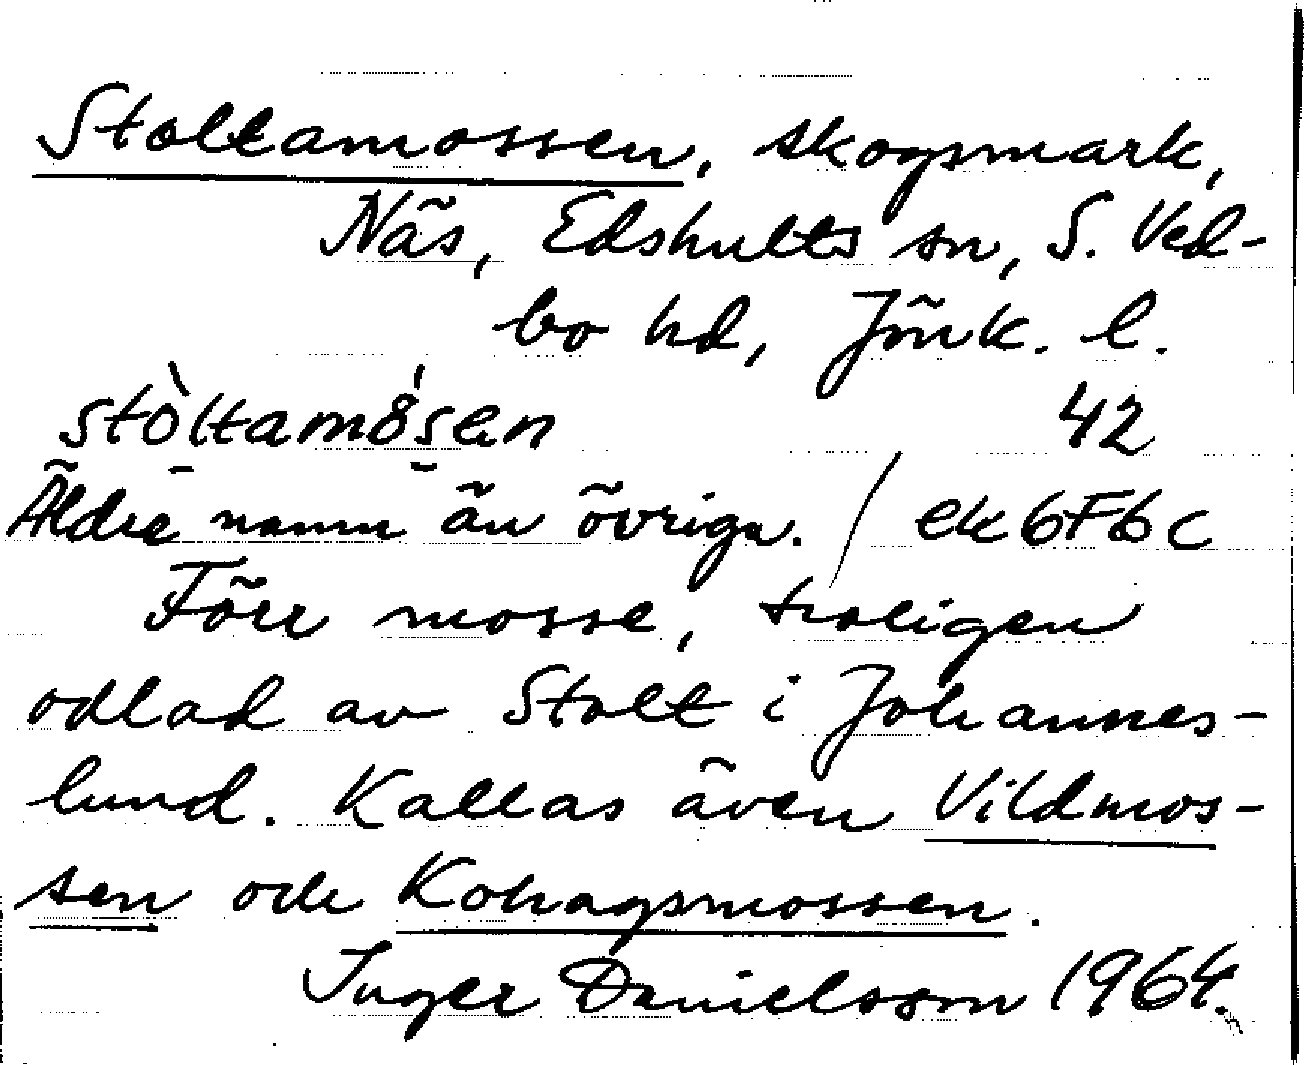 Stoltamossen, skogsmark,
Näs, Edshults sn, S. Ved-
bo hd, Jönk. l.
stòltamósen 42
Äldre namn än övriga. / ek 6F6c
Förr mosse, troligen
odlad av Stolt i Johannes-
lund. Kallas även Vildmos-
sen och Kohagsmossen.
Inger Danielsson 1964.